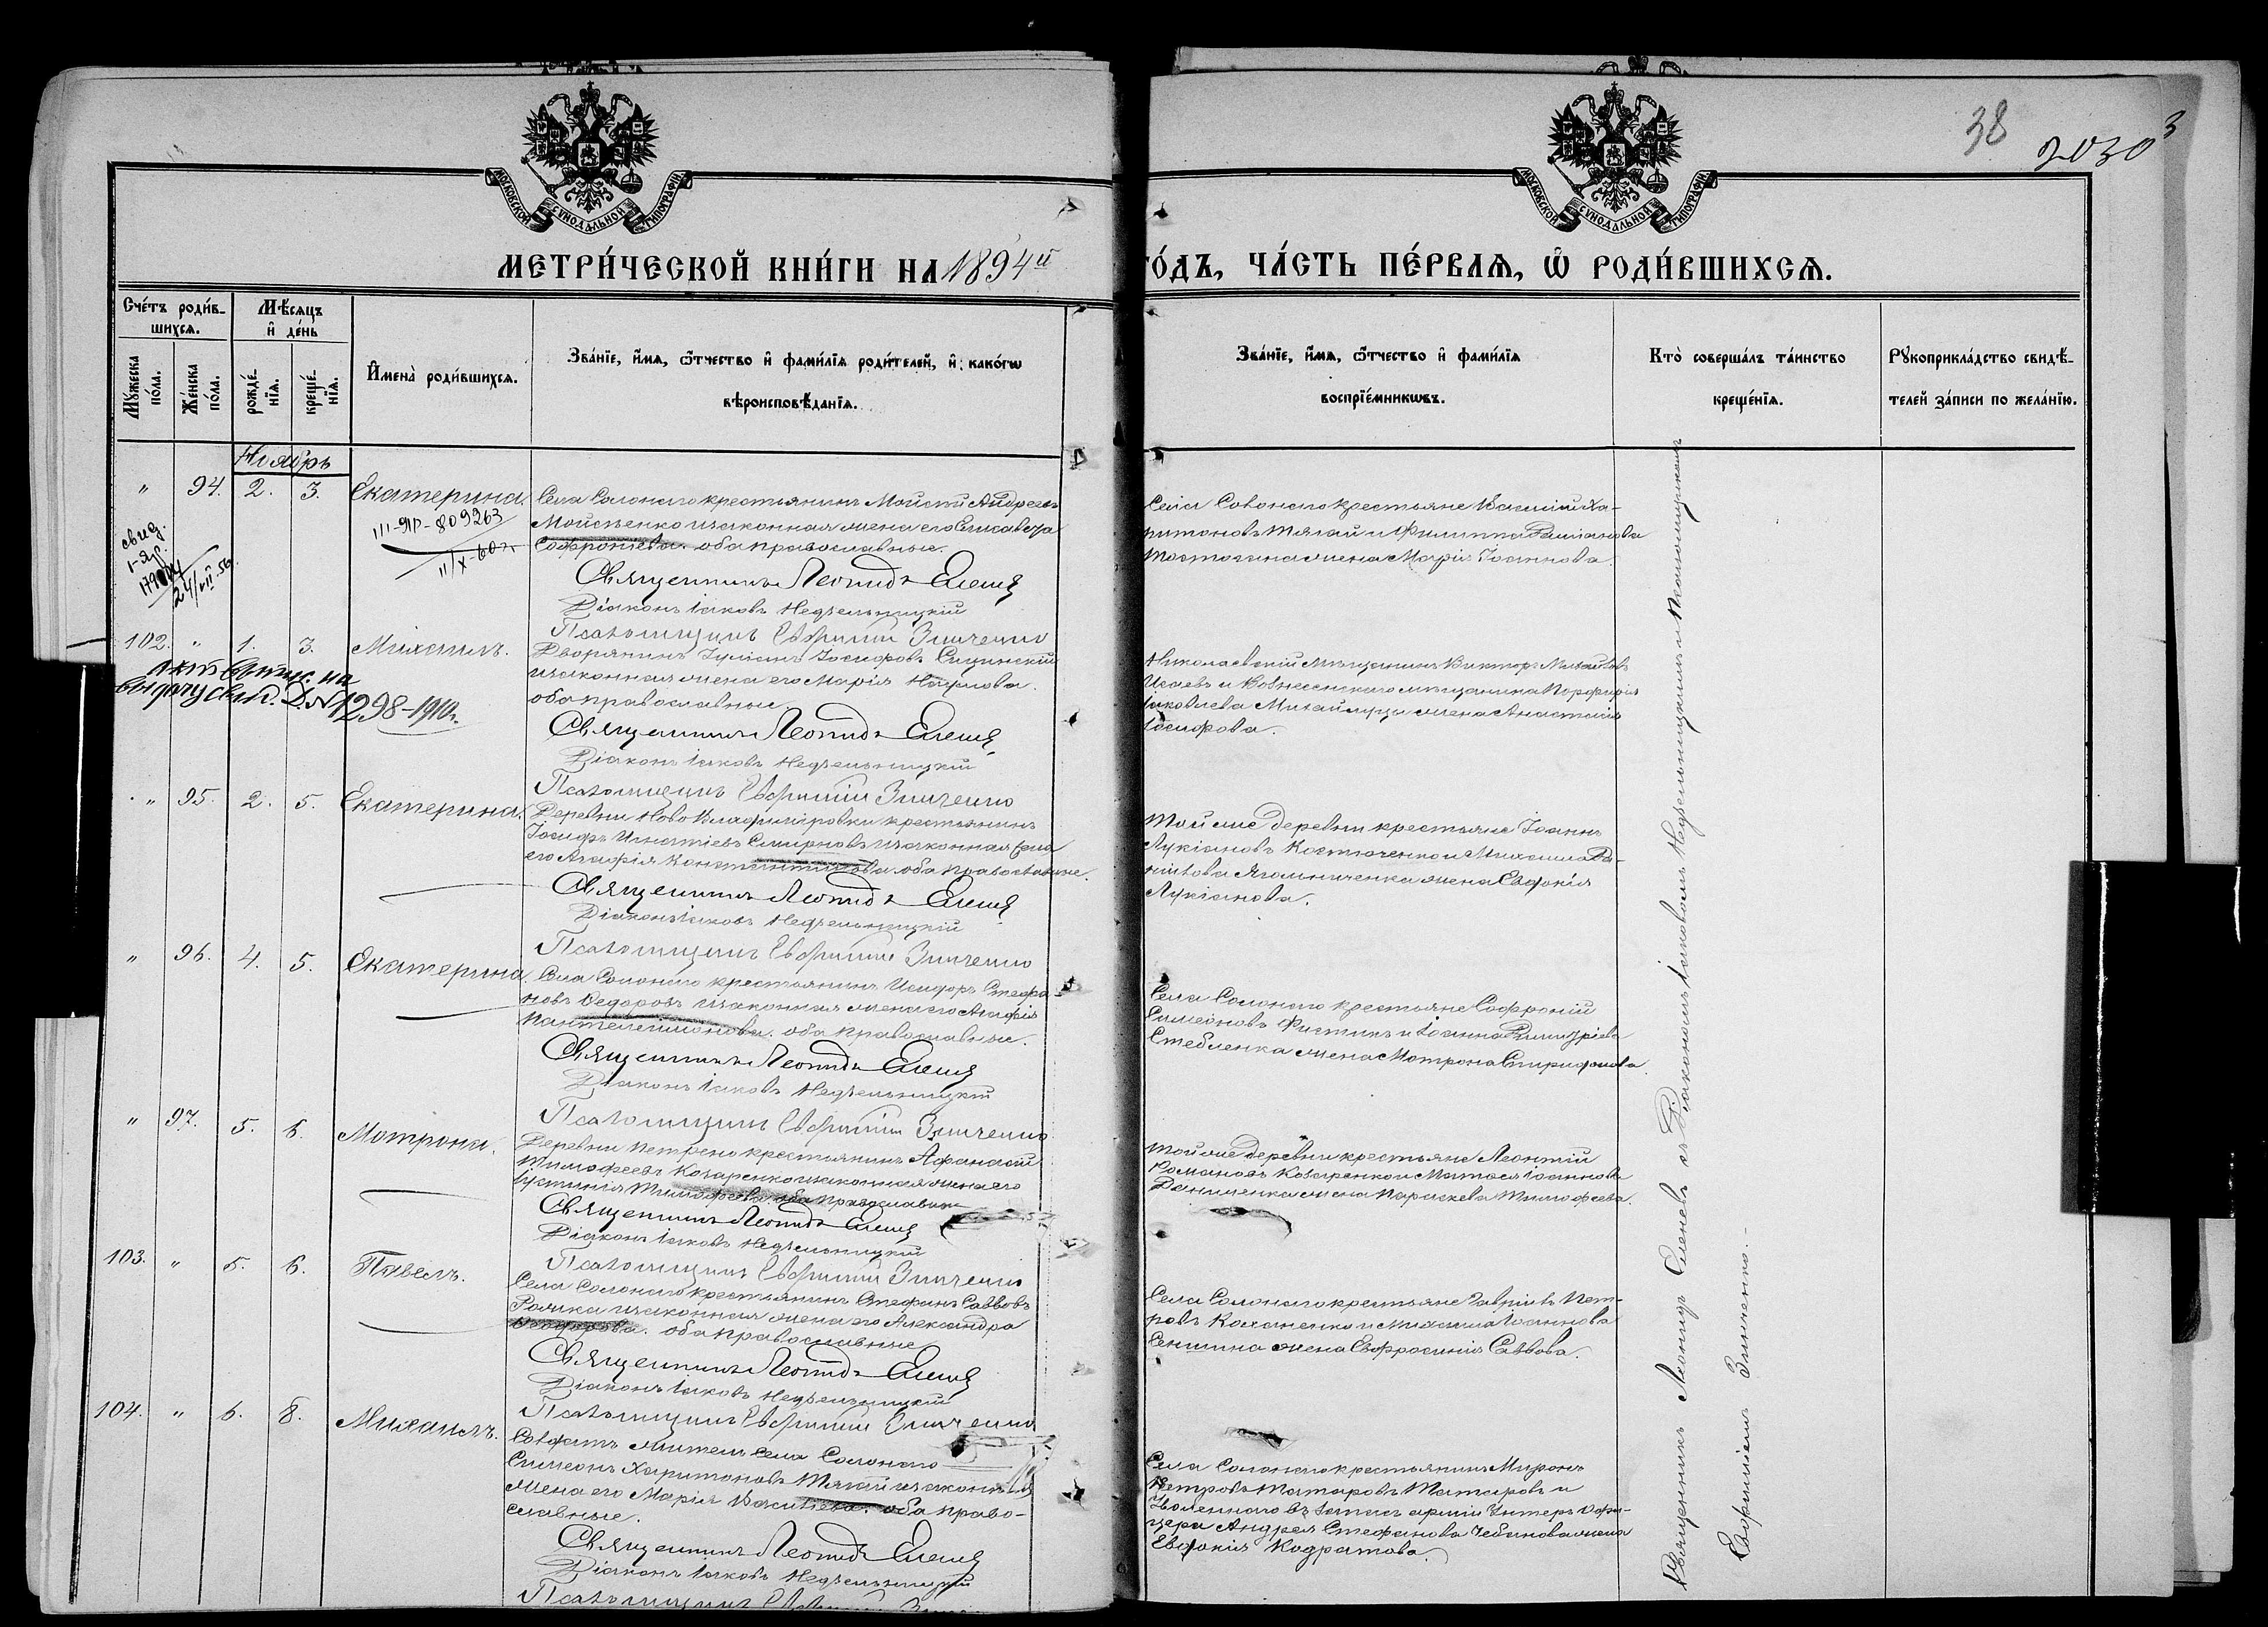 38
2030
3
МОСКОВСКОЙ СѴНОДАЛЬНОЙ ТИПОГРАФІИ
МОСКОВСКОЙ СѴНОДАЛЬНОЙ ТИПОГРАФІИ
МЕТРИ́ЧЕСКОЙ КНИ́ГИ НА 1894й
ГО́ДЪ, ЧА́СТЬ ПЕ́РВАѦ, Ѡ РОДИ́ВШИХСѦ.
Сче́тъ роди́в-
шихсѧ.
Мѣ́сѧцъ
и де́нь
Мꙋжеска по́ла.
Же́нска по́ла.
рожде́-
нїѧ.
креще́-
нїѧ.
Имена̀ роди́вшихсѧ.
Зва́нїе, и́мѧ, ѻ҆́тчество и фами́лїѧ роди́телей, и како́гѡ
вѣроисповѣ́данїѧ.
Зва́нїе, и́мѧ, ѻ҆́тчество и фами́лїѧ
воспрїе́мникѡвъ.
Кто̀ соверша́лъ та́инство
креще́нїѧ.
Рꙋкоприкла́дство свидѣ́-
телей за́писи по жела́нїю.
Ноябрь
" 94. 2. 3. Екатерина.
III-ЯР-809263
11/X-60 г.
свид.
24/VII-56.
Села Солонаго крестьянинъ Мойсей Андреевъ
Мойсѣенко и законная жена его Елисавета
Софроніева. оба православные.
Священникъ Леонидъ Еленевъ
Діаконъ Іаковъ Недзельницкій
Псаломщикъ Евфимій Зинченко
Села Солонаго крестьяне Василій Ха-
ритоновъ Тягай и Филиппа
жена Марія Іоаннова.
102. " 1. 3. Михаилъ.
выдачу свид. Д. № 1298-1910 г.
Дворянинъ Іуліанъ Іосифовъ Сицинскій
и законная жена его Марія
оба православные.
Священникъ Леонидъ Еленевъ
Діаконъ Іаковъ Недзельницкій
Псаломщикъ Евфимій Зинченко
Николаевскій мѣщанинъ Викторъ Михайловъ
Исаевъ и Вознесенскаго мѣщанина Порфирія
Іаковлева жена Анастасія
Іосифова.
" 95. 2. 5. Екатерина.
Деревни Ново Владимировки крестьянинъ
Іосифъ Игнатіевъ Смирновъ и законная жена
его Агафія Константинова. оба православные.
Священникъ Леонидъ Еленевъ
Діаконъ Іаковъ Недзельницкій
Псаломщикъ Евфимій Зинченко
Той же деревни крестьяне Іоаннъ
Лукіановъ Костюченко и Михаила Да-
ніилова жена Евдокія
Лукіанова.
" 96. 4. 5. Екатерина.
Села Солонаго крестьянинъ Исидоръ Стефа-
новъ Ѳедоровъ и законная жена его Агафія
Пантелеимонова. оба православные.
Священникъ Леонидъ Еленевъ
Діаконъ Іаковъ Недзельницкій
Псаломщикъ Евфимій Зинченко
Села Солонаго крестьяне Софроній
Симеоновъ и Іоанна Димитріева
Стебленка жена Мотрона Спиридонова.
" 97. 5. 6. Мотрона.
Деревни Петрено крестьянинъ Афанасій
Тимофеевъ Козаренко и законная жена его
Іустинія Тимофеева. оба православные
Священникъ Леонидъ Еленевъ
Діаконъ Іаковъ Недзельницкій
Псаломщикъ Евфимій Зинченко
Той же деревни крестьяне Леонтій
Романовъ Козаренко и Матѳея Іоаннова
Даниленка жена Параскева Тимофеева.
103. " 5. 6. Павелъ.
Села Солонаго крестьянинъ Стефанъ Саввовъ
и законная жена его Александра
Ѳеодорова. оба православные
Священникъ Леонидъ Еленевъ
Діаконъ Іаковъ Недзельницкій
Псаломщикъ Евфимій Зинченко
Села Солонаго крестьяне Гавріилъ Пет-
ровъ Коханенко и Михаила Іоаннова
жена Евфросинія Саввова.
104. " 6. 8. Михаилъ.
Солдатъ житель села Солонаго
Симеонъ Харитоновъ Тягай и законная
жена его Марія Василіева. оба право-
славные.
Священникъ Леонидъ Еленевъ
Діаконъ Іаковъ Недзельницкій
Псаломщикъ Евфимій
Села Солонаго крестьянинъ Миронъ
Петровъ Татаровъ и
Уволеннаго въ запасъ арміи Унтеръ Офи-
цера Андрея Стефанова Чебанова жена
Евдокія Кодратова.
Священникъ Леонидъ Еленевъ съ Діакономъ Іаковомъ Недзельницкимъ и Псаломщикомъ
Евфиміемъ Зинченко.